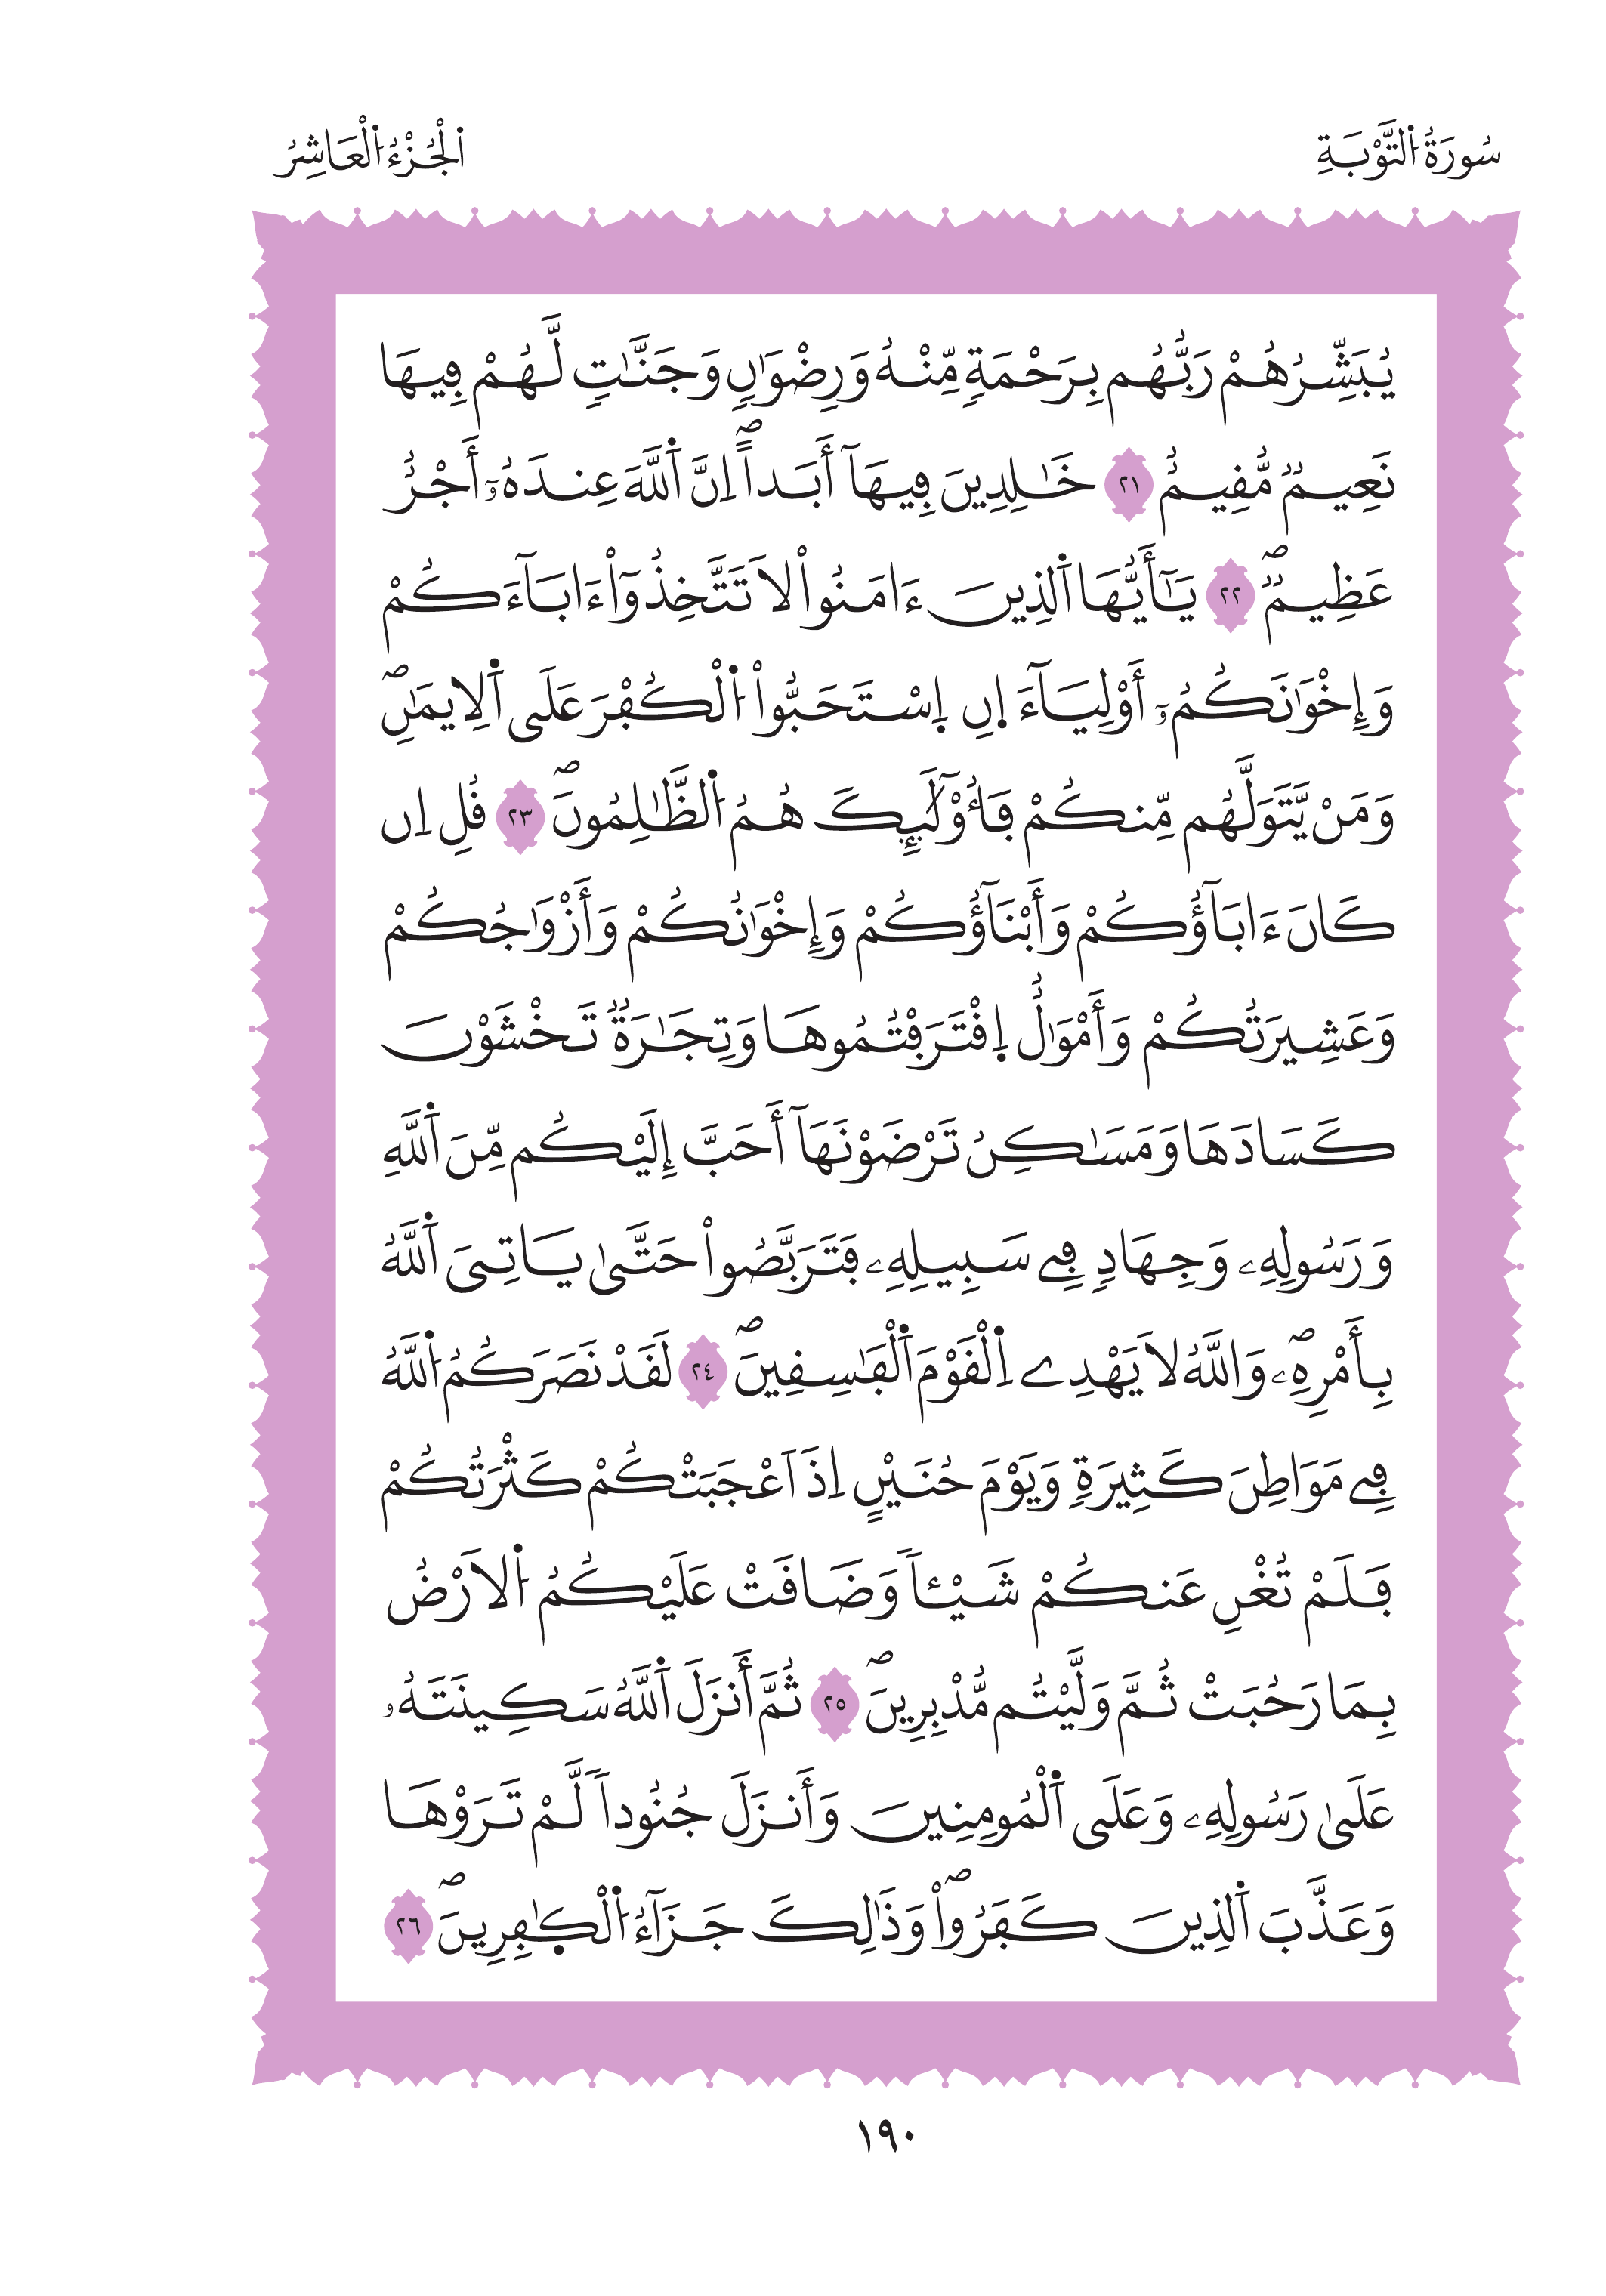 سُورَةُ اُ۬لتَّوْبَةِ
اُ۬لْجُزْءُ اُ۬لْعَاشِرُ
يُبَشِّرُهُمْ رَبُّهُم بِرَحْمَةٖ مِّنْهُ وَرِضْوَٰنٖ وَجَنَّٰتٖ لَّهُمْ فِيهَا
نَعِيمٞ مُّقِيمٌۖ ٢١ خَٰلِدِينَ فِيهَآ أَبَداًۖ اِنَّ اَ۬للَّهَ عِندَهُۥٓ أَجْرٌ
عَظِيمٞۖ ٢٢ يَٰٓأَيُّهَا اَ۬لذِينَ ءَامَنُواْ لَا تَتَّخِذُوٓاْ ءَابَآءَكُمْ
وَإِخْوَٰنَكُمُۥٓ أَوْلِيَآءَ اِنِ اِ۪سْتَحَبُّواْ اُ۬لْكُفْرَ عَلَى اَ۬لِايمَٰنِۖ
وَمَنْ يَّتَوَلَّهُم مِّنكُمْ فَأُوْلَٰٓئِكَ هُمُ اُ۬لظَّٰلِمُونَۖ ٢٣ قُلِ اِن
كَانَ ءَابَآؤُكُمْ وَأَبْنَآؤُكُمْ وَإِخْوَٰنُكُمْ وَأَزْوَٰجُكُمْ
وَعَشِيرَتُكُمْ وَأَمْوَٰلٌ اِ۪قْتَرَفْتُمُوهَا وَتِجَٰرَةٞ تَخْشَوْنَ
كَسَادَهَا وَمَسَٰكِنُ تَرْضَوْنَهَآ أَحَبَّ إِلَيْكُم مِّنَ اَ۬للَّهِ
وَرَسُولِهِۦ وَجِهَادٖ فِے سَبِيلِهِۦ فَتَرَبَّصُواْ حَتَّىٰ يَاتِىَ اَ۬للَّهُ
بِأَمْرِهِۦۖ وَاللَّهُ لَا يَهْدِے اِ۬لْقَوْمَ اَ۬لْفَٰسِقِينَۖ ٢٤ لَقَدْ نَصَرَكُمُ اُ۬للَّهُ
فِے مَوَاطِنَ كَثِيرَةٖ وَيَوْمَ حُنَيْنٍ اِذَ اَعْجَبَتْكُمْ كَثْرَتُكُمْ
فَلَمْ تُغْنِ عَنكُمْ شَيْـٔاٗ وَضَاقَتْ عَلَيْكُمُ اُ۬لَارْضُ
بِمَا رَحُبَتْ ثُمَّ وَلَّيْتُم مُّدْبِرِينَۖ ٢٥ ثُمَّ أَنزَلَ اَ۬للَّهُ سَكِينَتَهُۥ
عَلَىٰ رَسُولِهِۦ وَعَلَى اَ۬لْمُومِنِينَ وَأَنزَلَ جُنُوداٗ لَّمْ تَرَوْهَا
وَعَذَّبَ اَ۬لذِينَ كَفَرُواْۖ وَذَٰلِكَ جَزَآءُ اُ۬لْكٰ۪فِرِينَۖ ٢٦
١٩٠